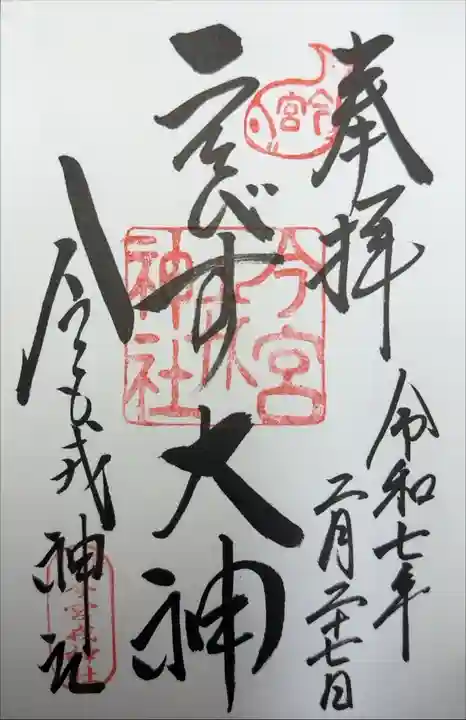 奉拝
令和七年
二月二十七日
今宮
ゑびす大神
今宮戎神社
今宮戎神社